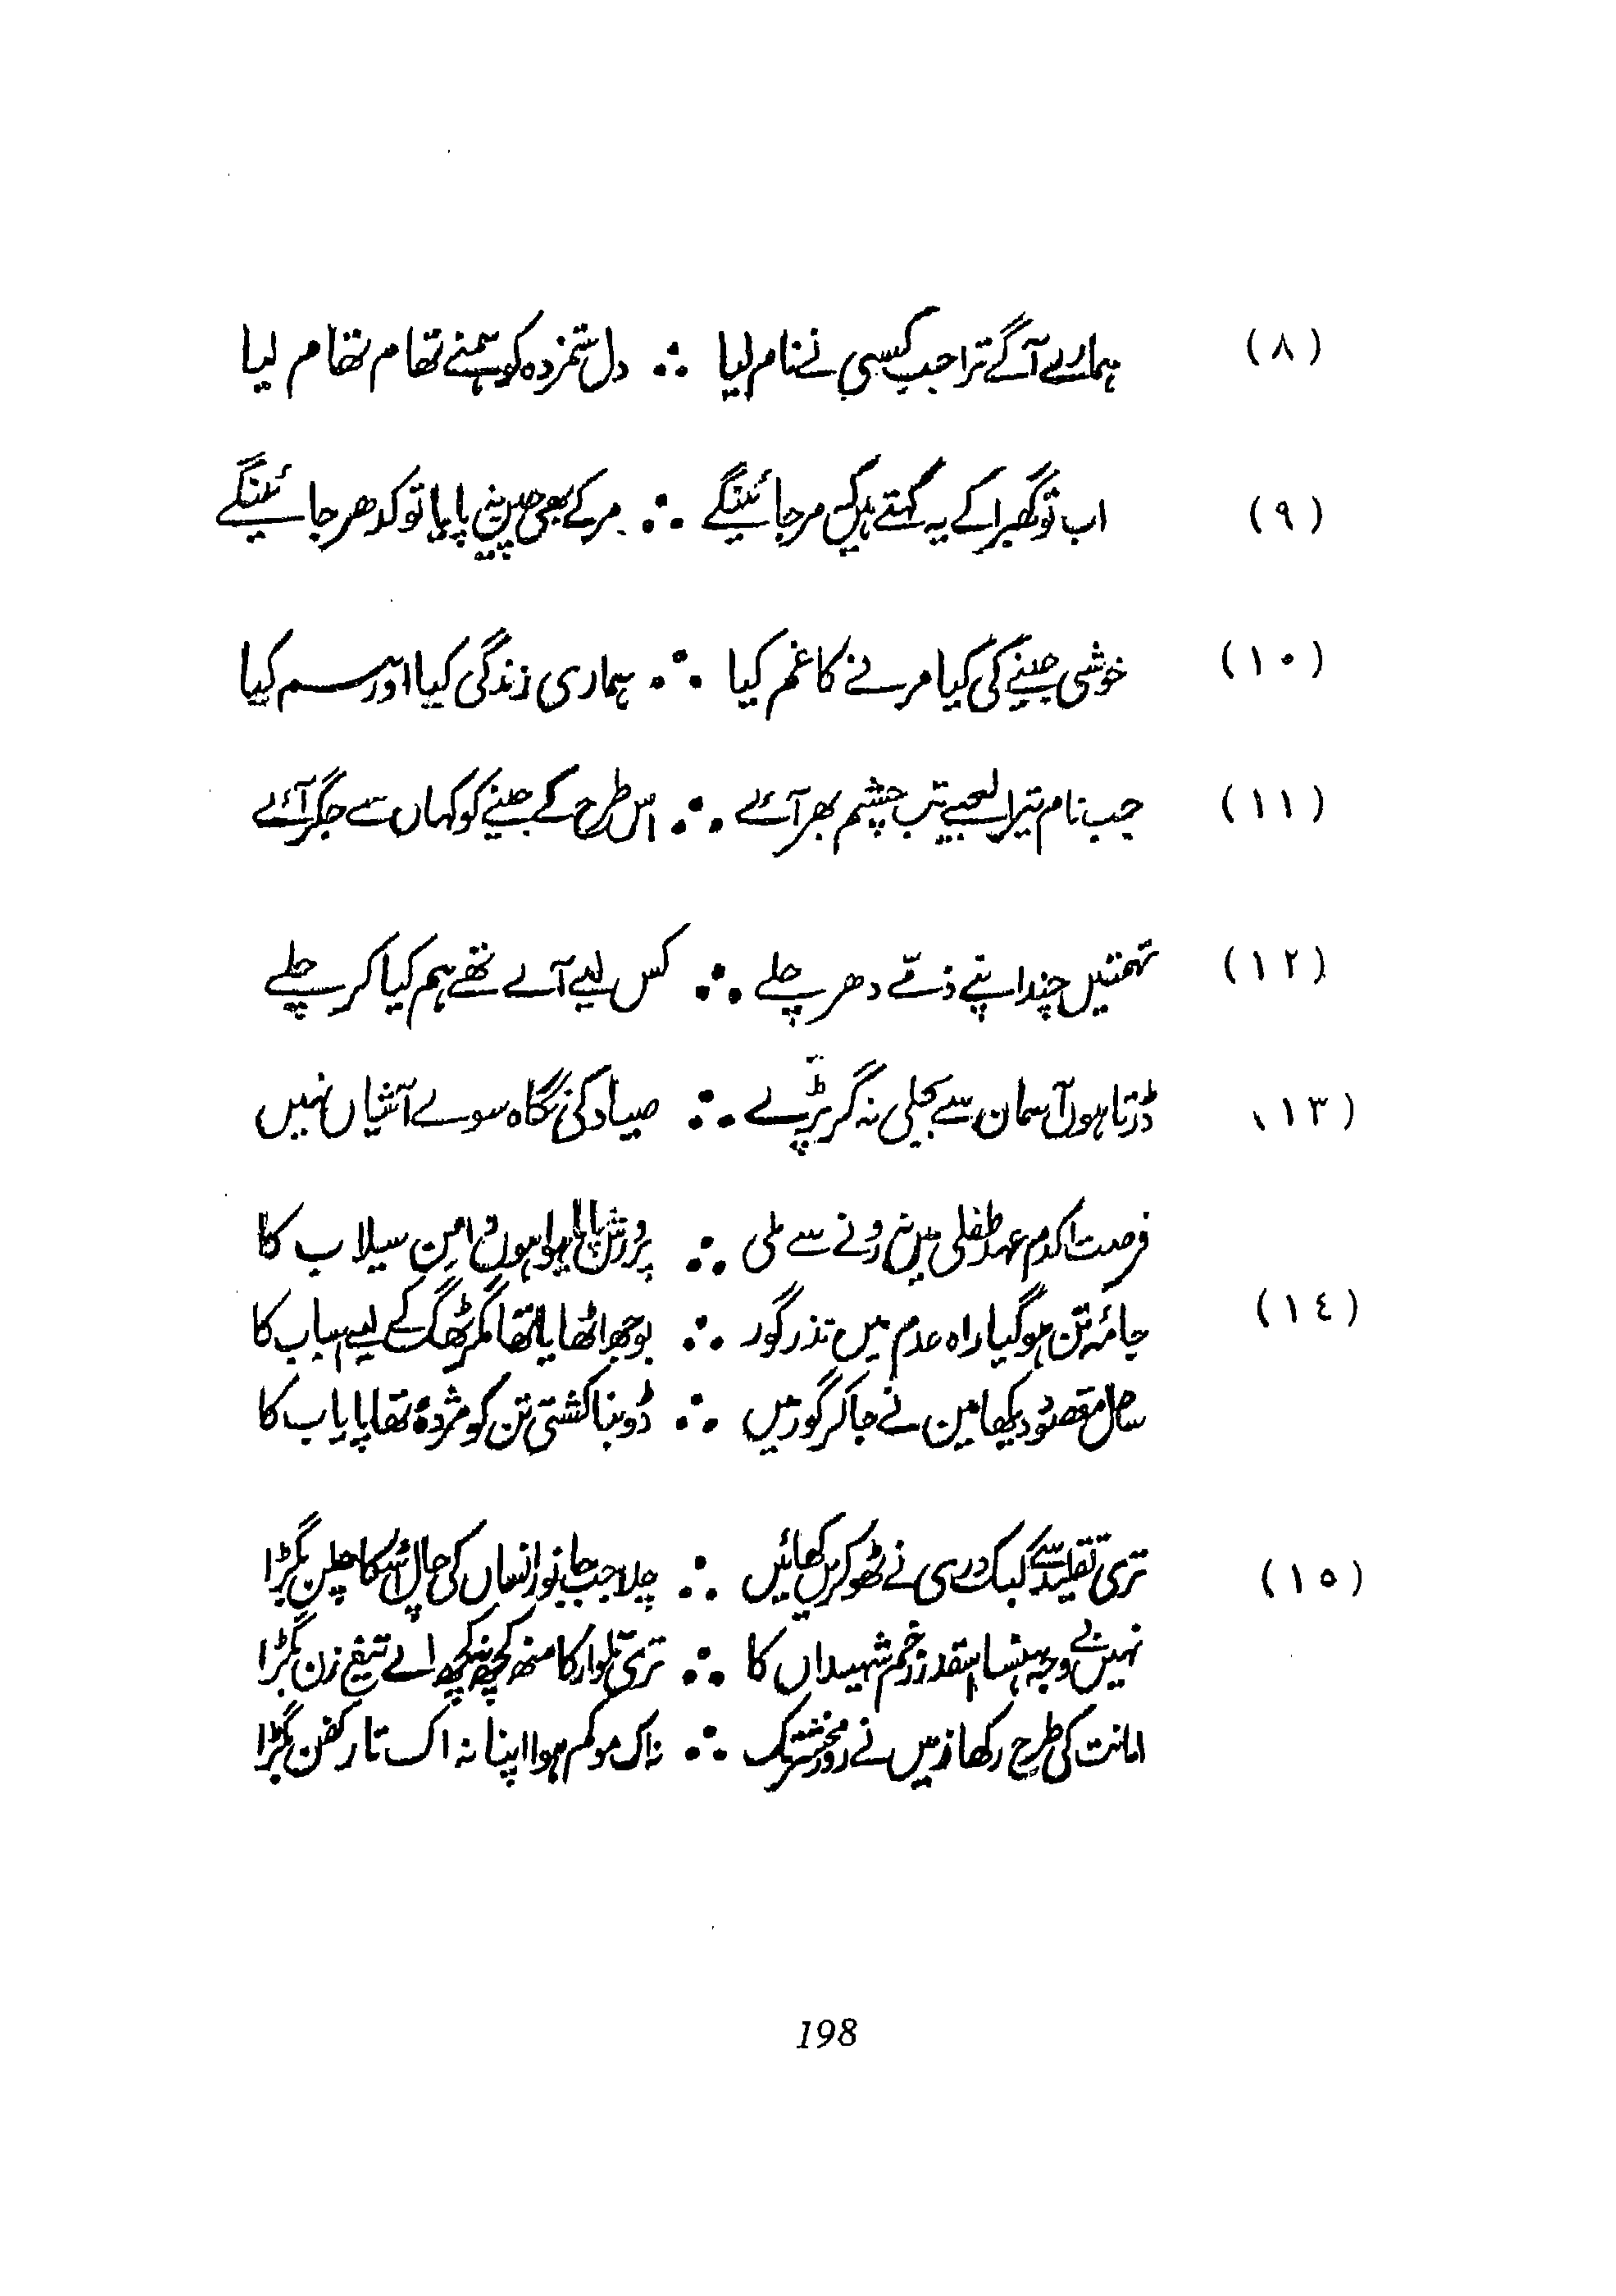 (٨) ہمارے آگے ترا جب کسی نے نام لیا ∴ دل ستمزدہ کو ہمنے تھام تھام لیا
(٩) اب تو گھبرا کے یہ کہتے ہیں کہ مر جائینگے ∴ مر کے بھی چین نہ پایا تو کدھر جائینگے
(١٠) خوشی جینے کی کیا مرنے کا غم کیا ∴ ہماری زندگی کیا اور ہم کیا
(١١) جب نام ترا لیجیے تب چشم بھر آئے ∴ اس طرح کے جینے کو کہاں سے جگر آئے
(١٢) تہمتیں چند اپنے ذمّے دھر چلے ∴ کس لیے آے تھے ہم کیا کر چلے
(١٣) ڈرتا ہوں آسمان سے بجلی نہ گر پڑے ∴ صیاد کی نگاہ سوے آشیاں نہیں
فرصت اکدم عہد طفلی میں نہ رونے سے ملی ∴ پرورش پایا ہوا ہوں دامن سیلاب کا
(١٤) جامۂ تن ہو گیا راہ عدم میں نذر گور ∴ بوجھ اٹھایا تھا مگر ٹھگ کے لیے اسباب کا
ساحل مقصود دیکھا مین نے جا کر گور میں ∴ ڈوبنا کشتی تن کو مژدہ تھا پایاب کا
(١٥) تری تقلید سے کبک دری نے ٹھوکریں کھائیں ∴ چلا جب جانور انساں کی چال اسکا چلن بگڑا
نہیں بے وجہ ہنسنا اسقدر زخم شہیداں کا ∴ تری تلوار کا منھ کچھ نہ کچھ اے تیغ زن بگڑا
امانت کی طرح رکھا زمیں نے روز محشر تک ∴ نہ اک مو کم ہوا اپنا نہ اک تار کفن بگڑا
198